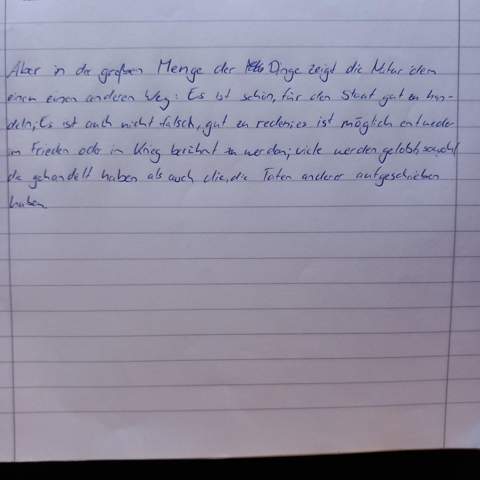 Aber in der großen Menge der Dinge zeigt die Natur dem
einen einen anderen Weg: Es ist schön, für den Staat gut zu han-
deln, Es ist auch nicht falsch, gut zu reden; es ist möglich entweder
im Frieden oder in Krieg berühmt zu werden; viele werden gelobt, sowohl
die gehandelt haben als auch die, die Taten anderer aufgeschrieben
haben